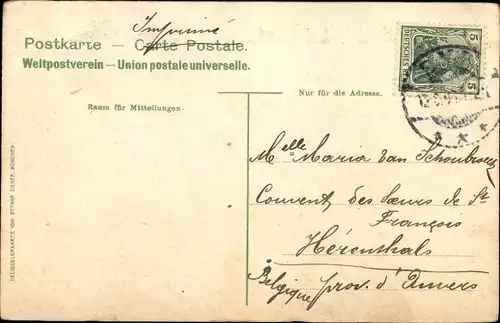 Imprimé
Postkarte — Carte Postale.
Weltpostverein — Union postale universelle.
Nur für die Adresse.
Raum für Mitteilungen.
5
DEUTSCHES
5
Melle Maria van Schoubroeck
Couvent des Sœurs de St
François
Hérenthals
Belgique prov. d'Anvers
HELIOCOLORKARTE VON OTTMAR ZIEHER, MÜNCHEN.